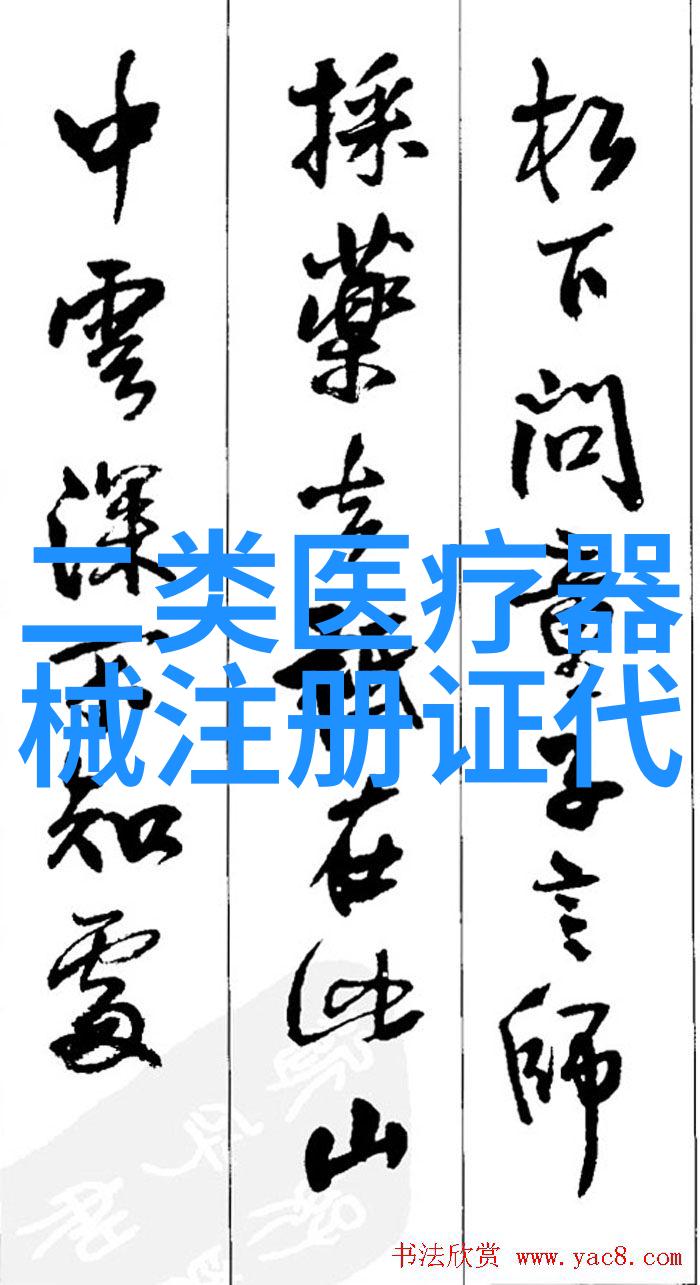 松下問童子言師
採藥去祇在此山
中雲深不知處
二类医疗器
械注册证代
书法欣赏 www.yac8.com